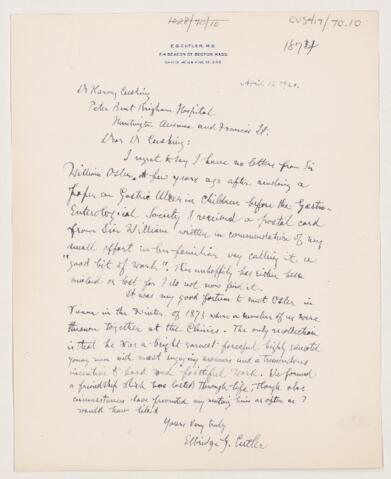 CUS417/70.10
E G CUTLER, M.D.
214 BEACON ST. BOSTON MASS
April 12 1920.
Dr Harvey Cushing
Peter Bent Brigham Hospital
Huntington Avenue and Francis St.
Dear Dr Cushing:
I regret to say I have no letters from Sir
William Osler. A few years ago after reading a
paper on Gastric Ulcer in Children before the Gastro-
Enterological Society I received a postal card
from Sir William written in commendation of my
small effort in his familiar way calling it a
"good bit of work". This unhappily has either been
mislaid or lost for I do not now find it.
It was my good fortune to meet Osler in
Vienna in the Winter of 1873 when a number of us were
thrown together at the Clinics. The only recollection
is that he was a bright earnest forceful highly educated
young man with most engaging manners and a tremendous
incentive to hard and faithful work. We formed
a friendship which has lasted through life, though alas
circumstances have prevented my meeting him as often as I
would have liked
Yours very truly
Elbridge G. Cutler